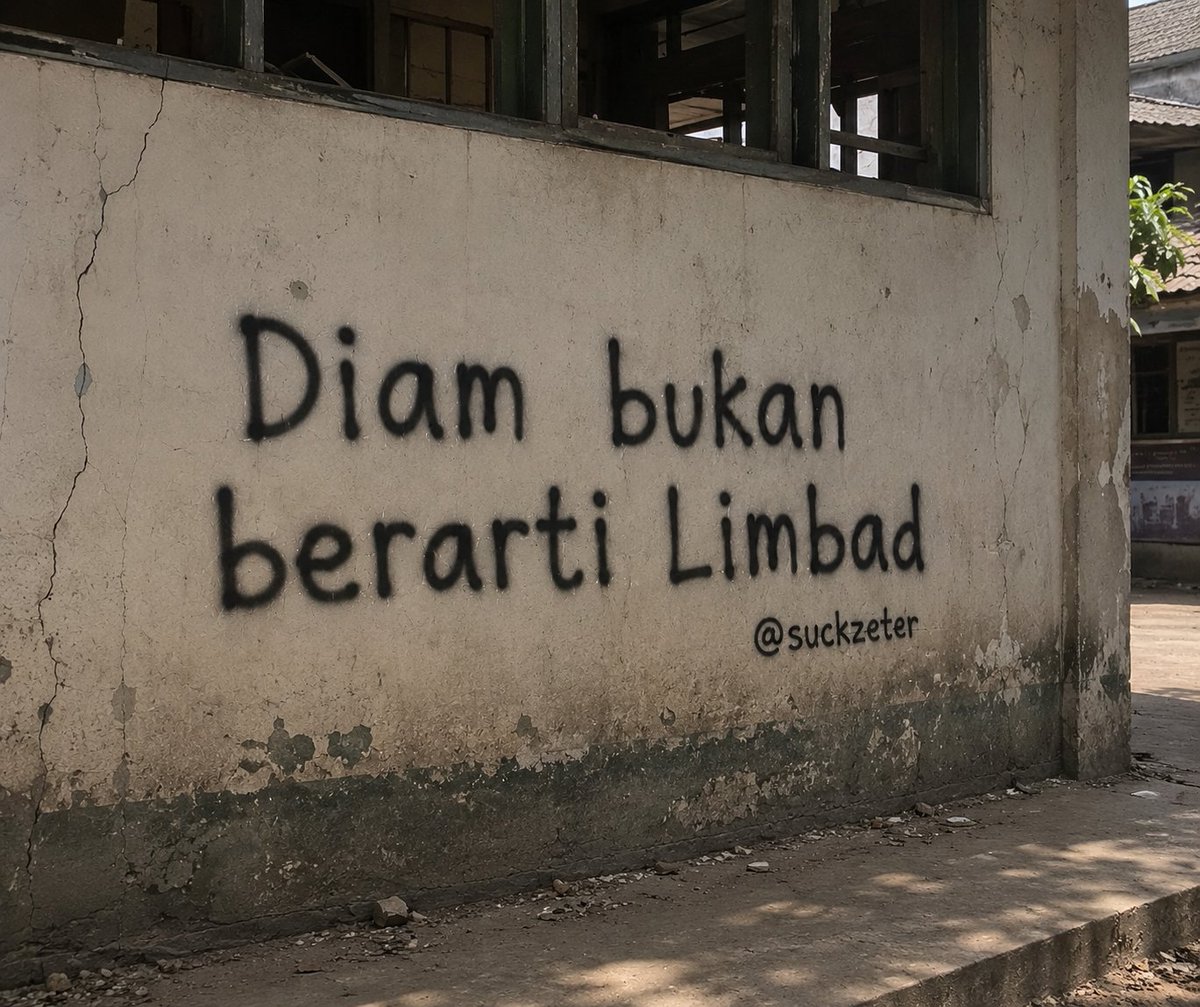 Diam bukan
berarti Limbad
@suckzeter